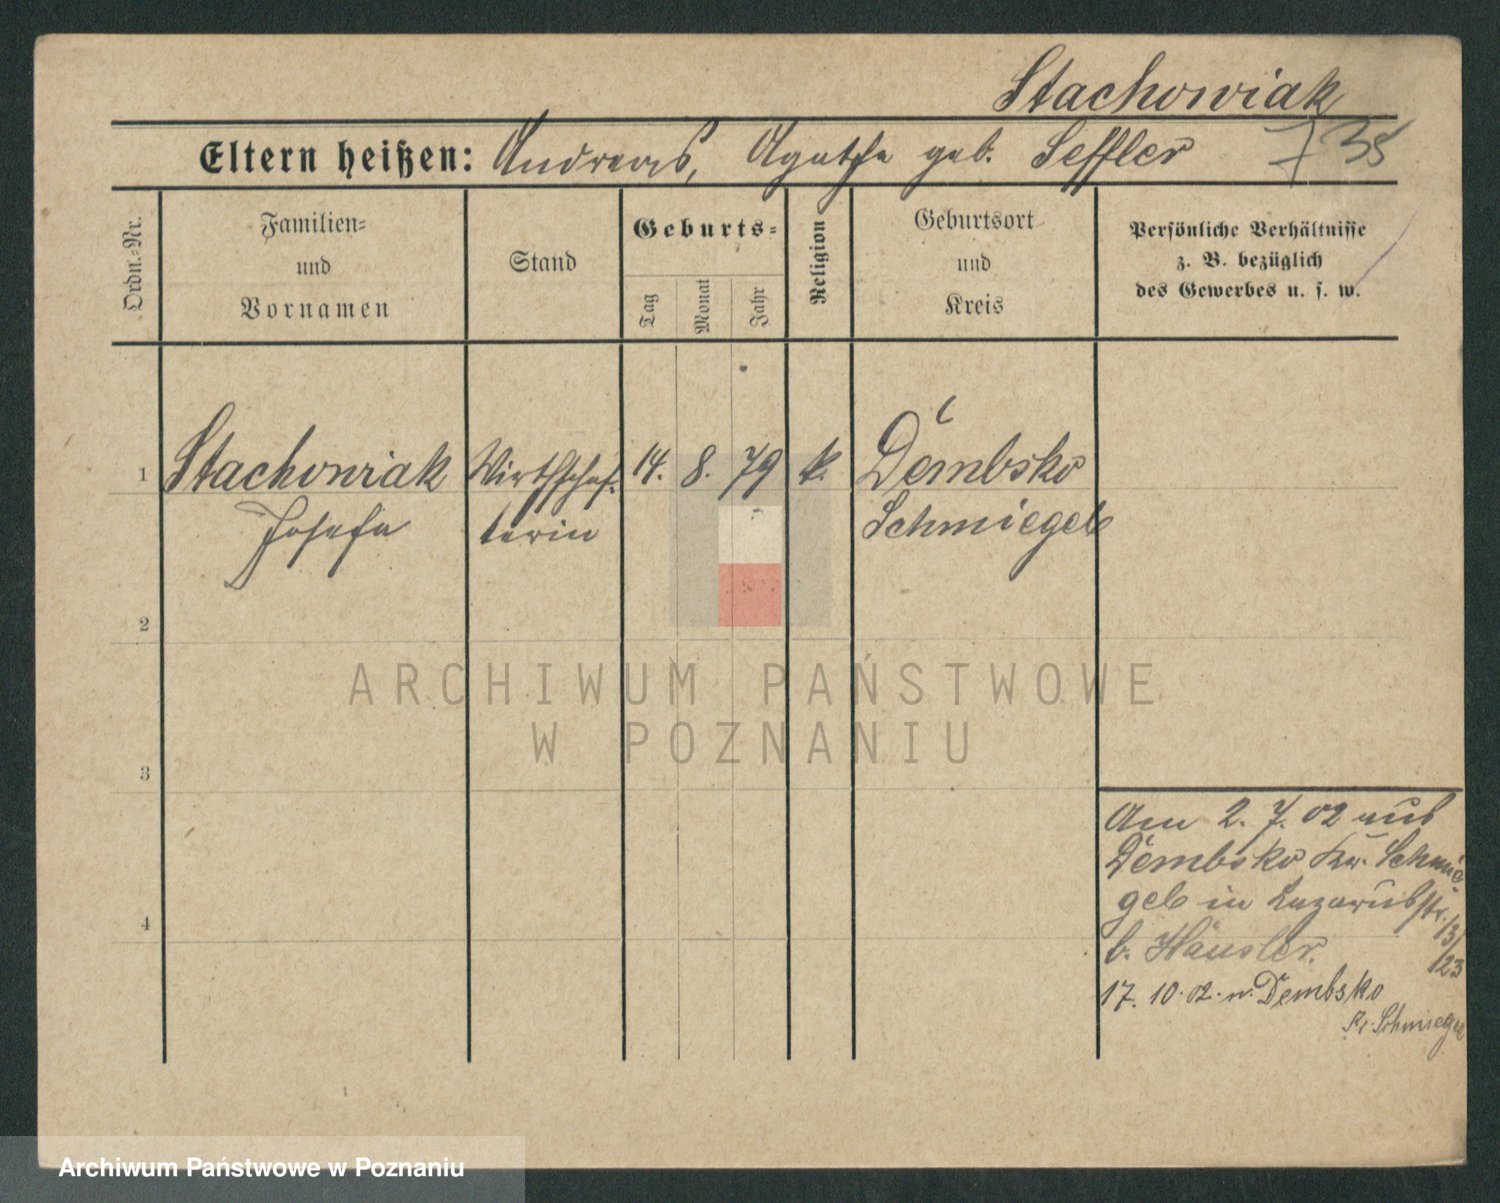 Stachowiak
Eltern heißen: Andreas, Agathe geb. Seffler
Ordn.-Nr.
Familien-
und
Vornamen
Stand
Geburts-
Tag
Monat
Jahr
Religion
Geburtsort
und
Kreis
Persönliche Verhältnisse
z. B. bezüglich
des Gewerbes u. s. w.
1 Stachowiak Wirthschaf- 14. 8. 79 k. Dembsko
Josefa terin Schmiegel
2
3
4
Am 2. 7. 02 aus
Dembsko Kr. Schmie
gel in Lazarusstr.
b. Häusler.
17. 10. 02. n. Dembsko
Kr. Schmiegel
ARCHIWUM PAŃSTWOWE
W POZNANIU
Archiwum Państwowe w Poznaniu